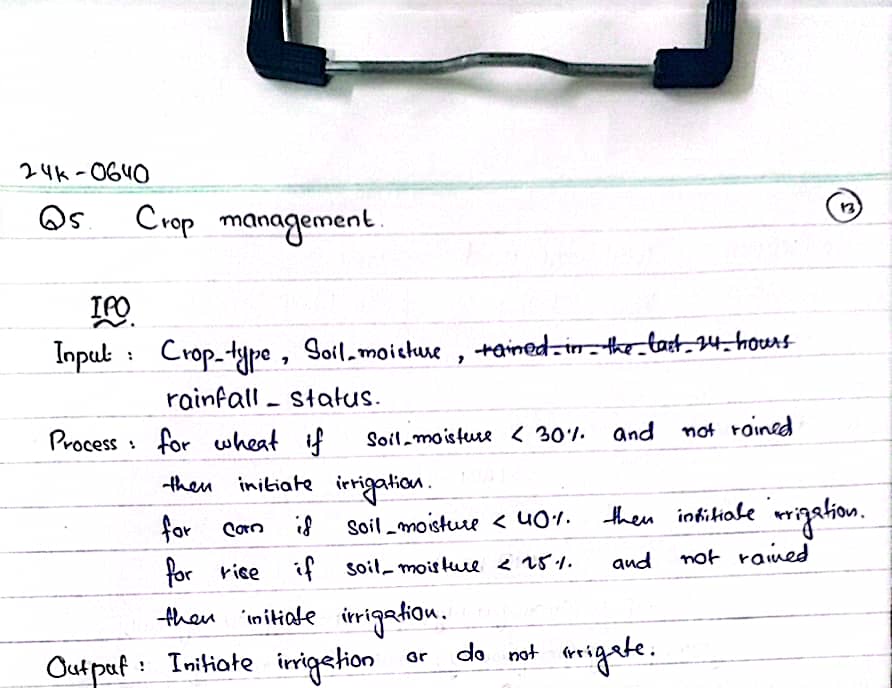 24k-0640
Q5. Crop management.
13
IPO.
Input : Crop-type, Soil-moisture, rained-in-the-last-24-hours
rainfall-status.
Process : for wheat if Soil-moisture < 30% and not rained
then initiate irrigation.
for corn if soil-moisture < 40% then initiate irrigation.
for rise if soil-moisture < 25% and not rained
then initiate irrigation.
Output : Initiate irrigation or do not irrigate.